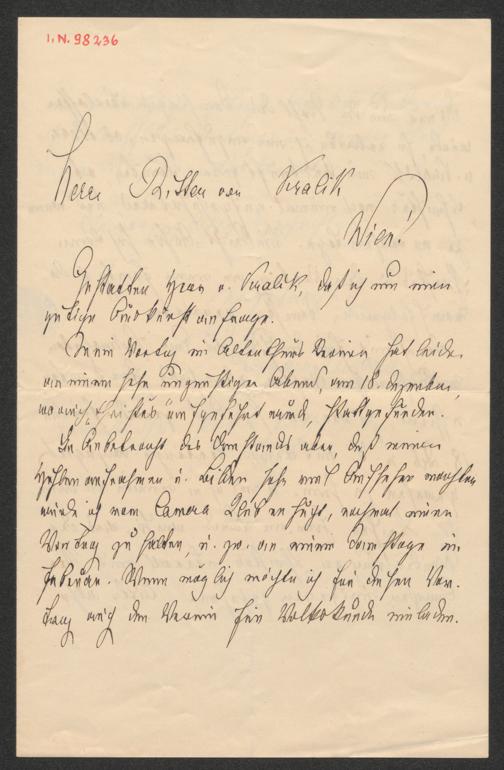 I.N. 98236
Herrn Ritter von Kralik
Wien!
Gestatten Herr v. Kralik, daß ich um eine
gütige Auskunft anfrage.
Mein Vortrag im Alterthums Verein hat leider
an einem sehr ungünstigen Abend, am 18. Dezember,
wo auch „Christus“ aufgeführt wurde, stattgefunden.
In Anbetracht des Umstandes aber, daß meine
Aufnahmen u. Bilder sehr viel Aufsehen machten
wurde ich vom Camera Club ersucht, nochmal einen
Vortrag zu halten, u. zw. an einem Samstage im
Februar. Wenn möglich möchte ich für diesen Vor-
trag auch den Verein für Volkskunde einladen.